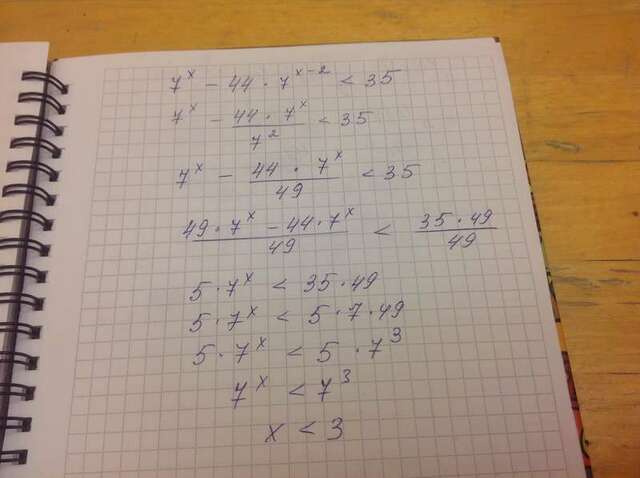 7^x − 44 · 7^(x−2) < 35
7^x − (44 · 7^x)/7^2 < 35
7^x − (44 · 7^x)/49 < 35
(49 · 7^x − 44 · 7^x)/49 < (35 · 49)/49
5 · 7^x < 35 · 49
5 · 7^x < 5 · 7 · 49
5 · 7^x < 5 · 7^3
7^x < 7^3
x < 3